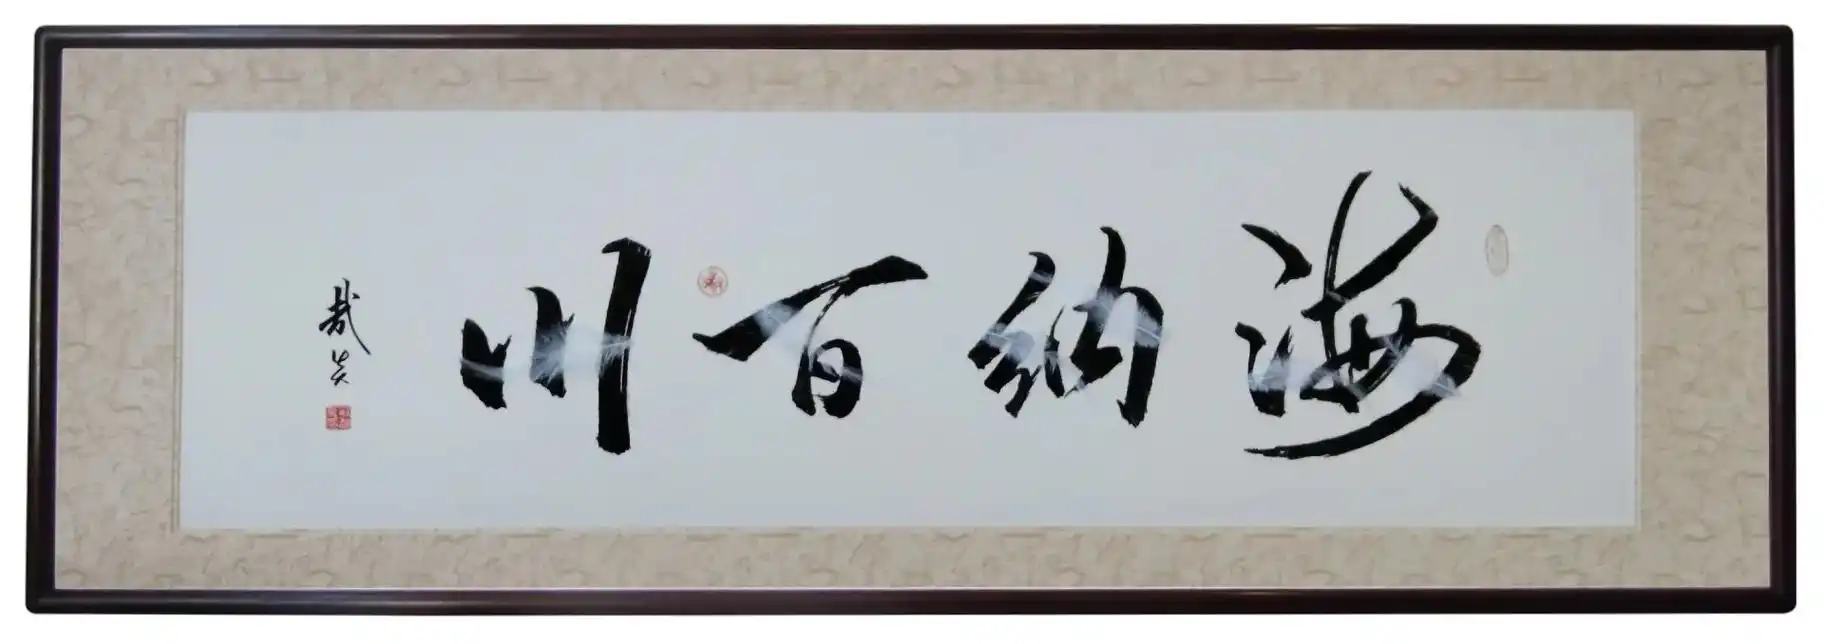 海纳百川